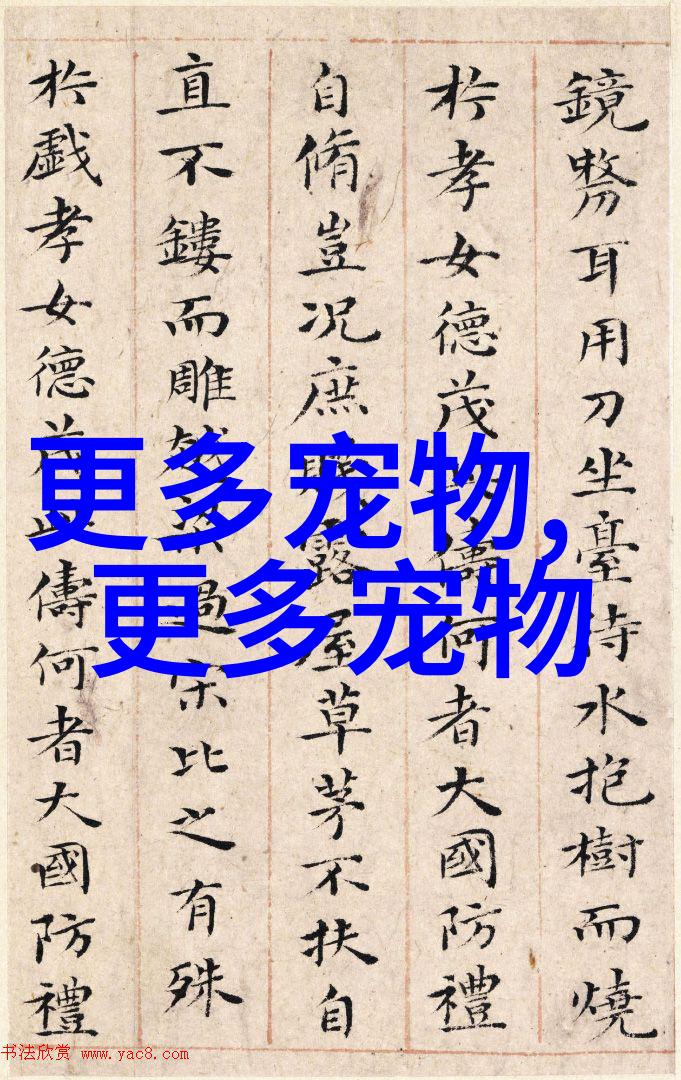 鏡剺耳用刀坐臺待水抱樹而燒
於孝女德茂此儔何者大國防禮
自脩豈況庶賤露屋草茅不扶自
直不鏤而雕越梁過宋比之有殊
於戲孝女德茂此儔何者大國防禮
更多宠物,
更多宠物
书法欣赏 www.yac8.com